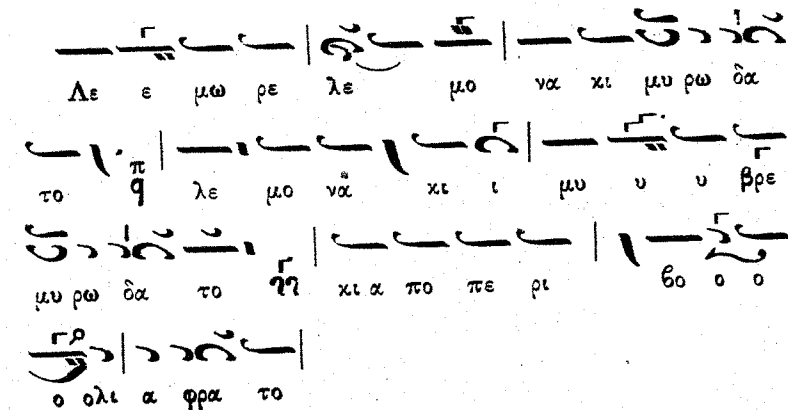 Λε ε μω ρε λε μο να κι μυ ρω δα
το π q λε μο νᾶ κι ι μυ υ υ βρε
μυ ρω δα το κι α πο πε ρι βο ο ο
ο ολι α φρα το